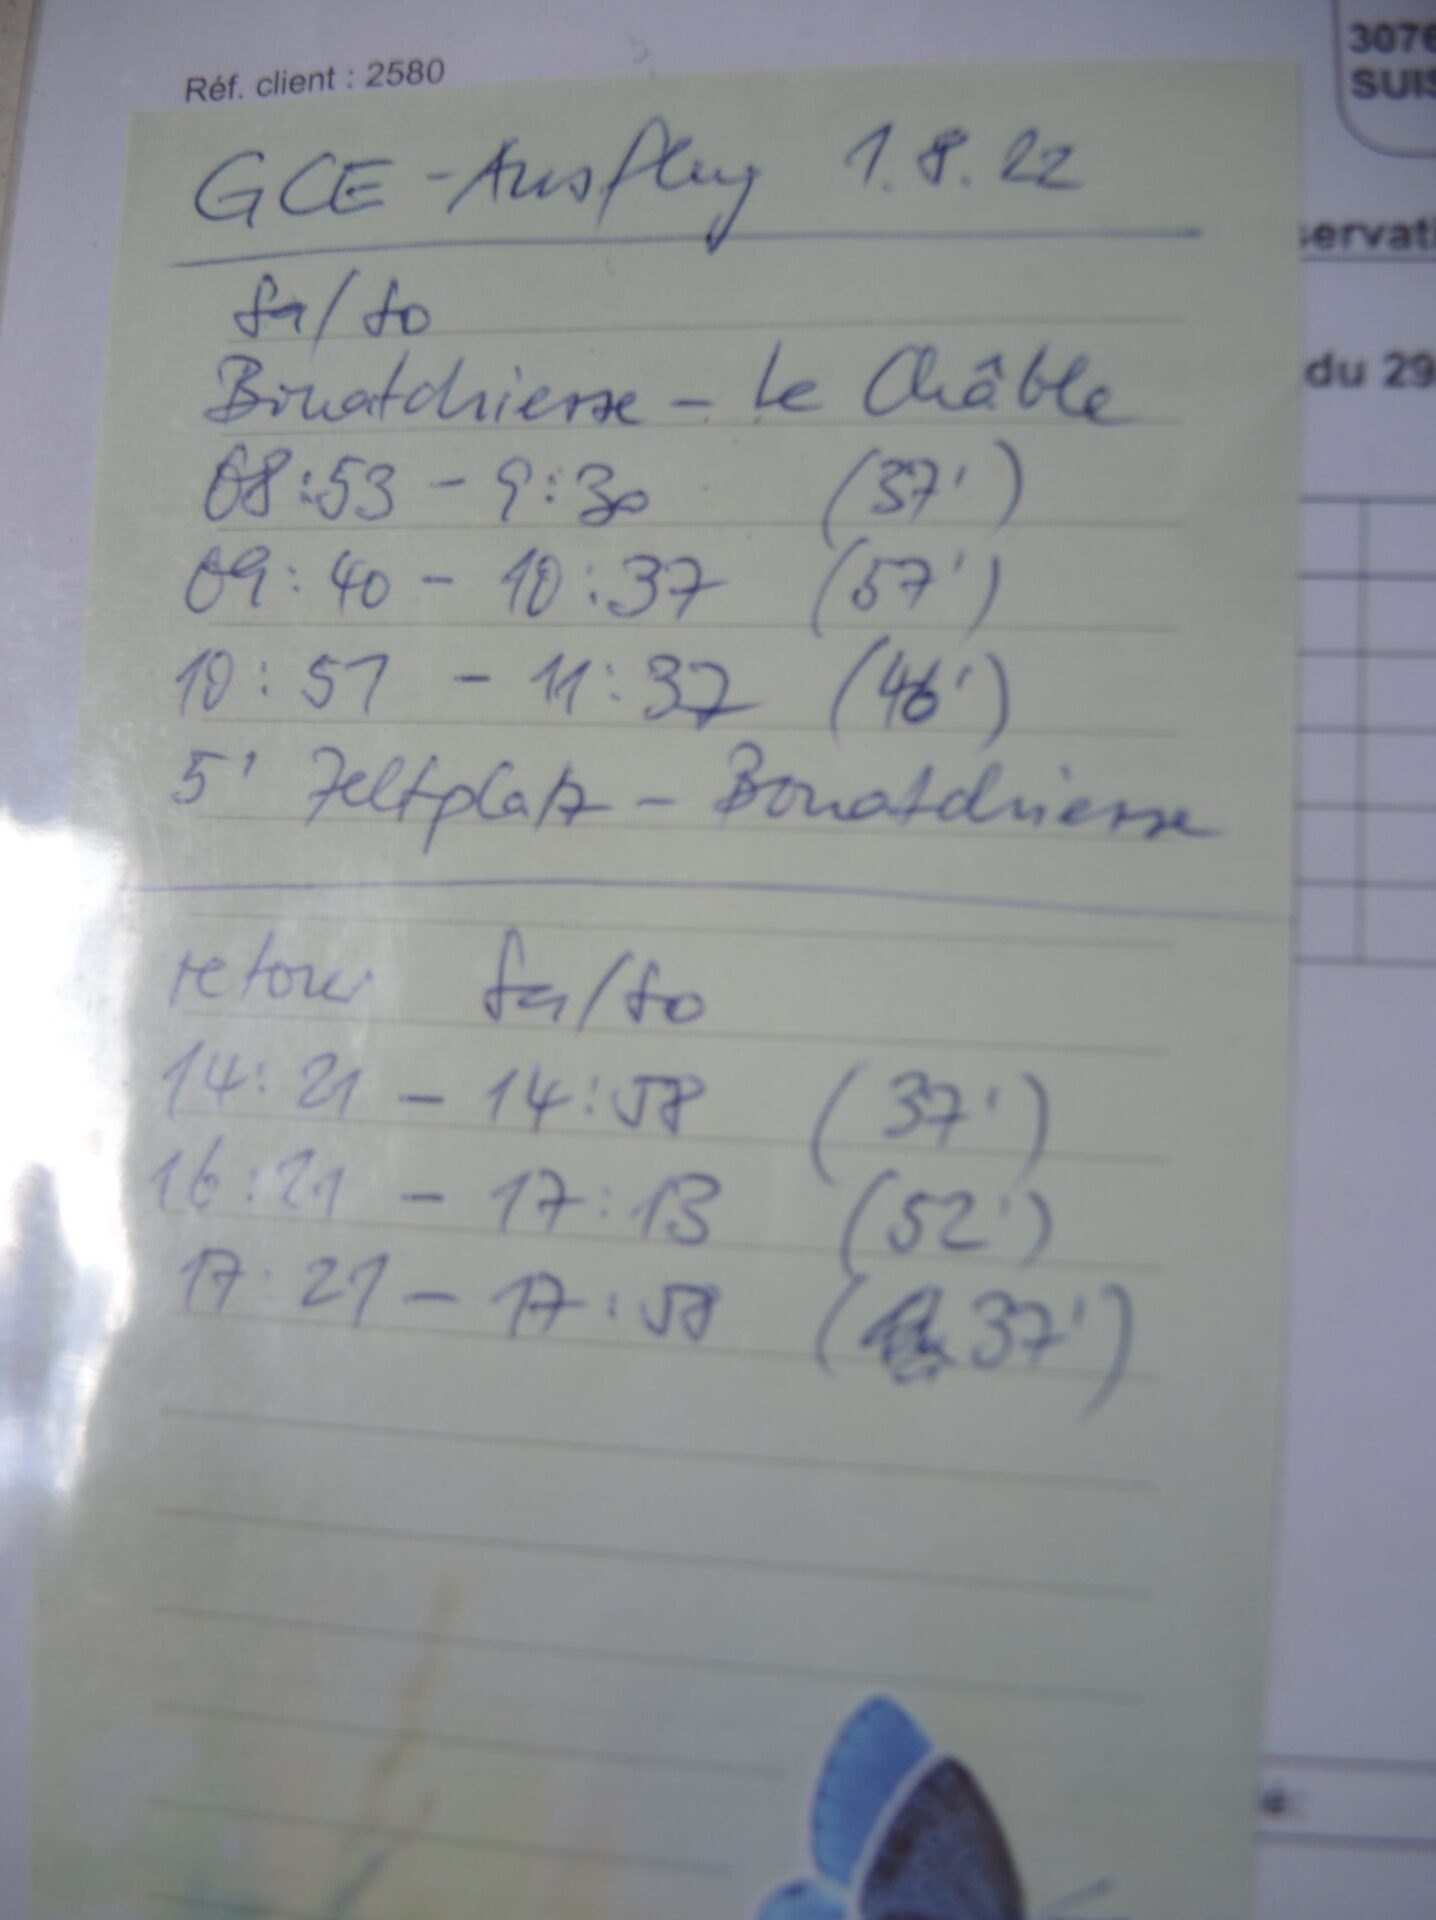 Réf. client : 2580
3076
SUIS
GCE - Ausflug 1.8.22
servati
Sa/So
du 29
Bonatchiesse - Le Châble
08:53 - 9:30 (37')
09:40 - 10:37 (57')
10:51 - 11:37 (46')
5' Zeltplatz - Bonatchiesse
retour Sa/So
14:21 - 14:58 (37')
16:21 - 17:13 (52')
17:21 - 17:58 (37')